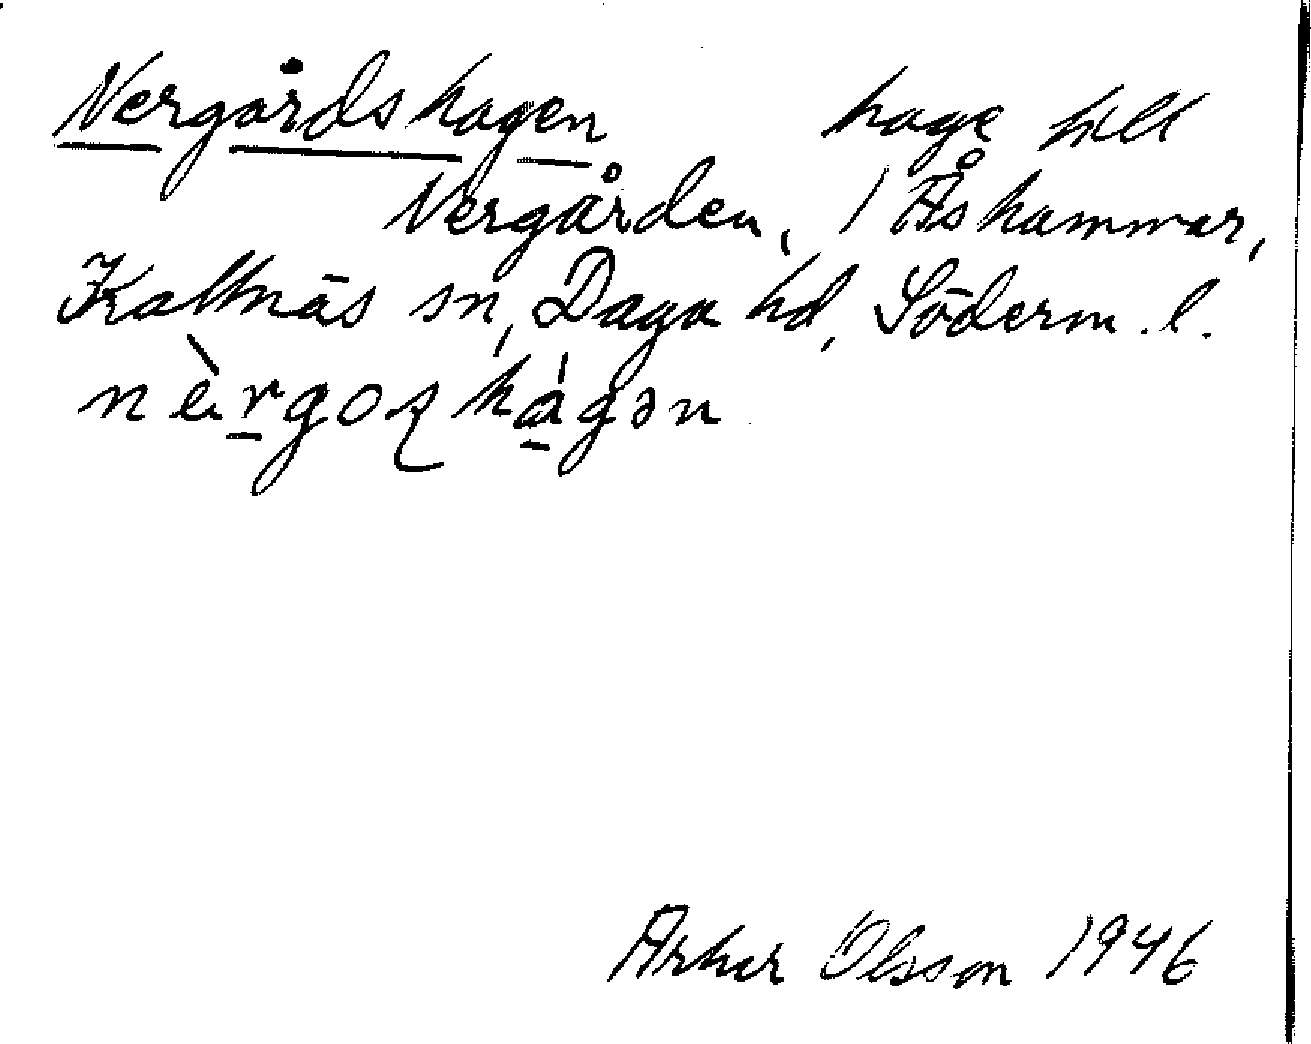 Nergårdshagen hage till
Nergården, 1 Åshammar,
Kattnäs sn, Daga hd, Söderm. l.
nèrgoʂhágən
Artur Olsson 1946